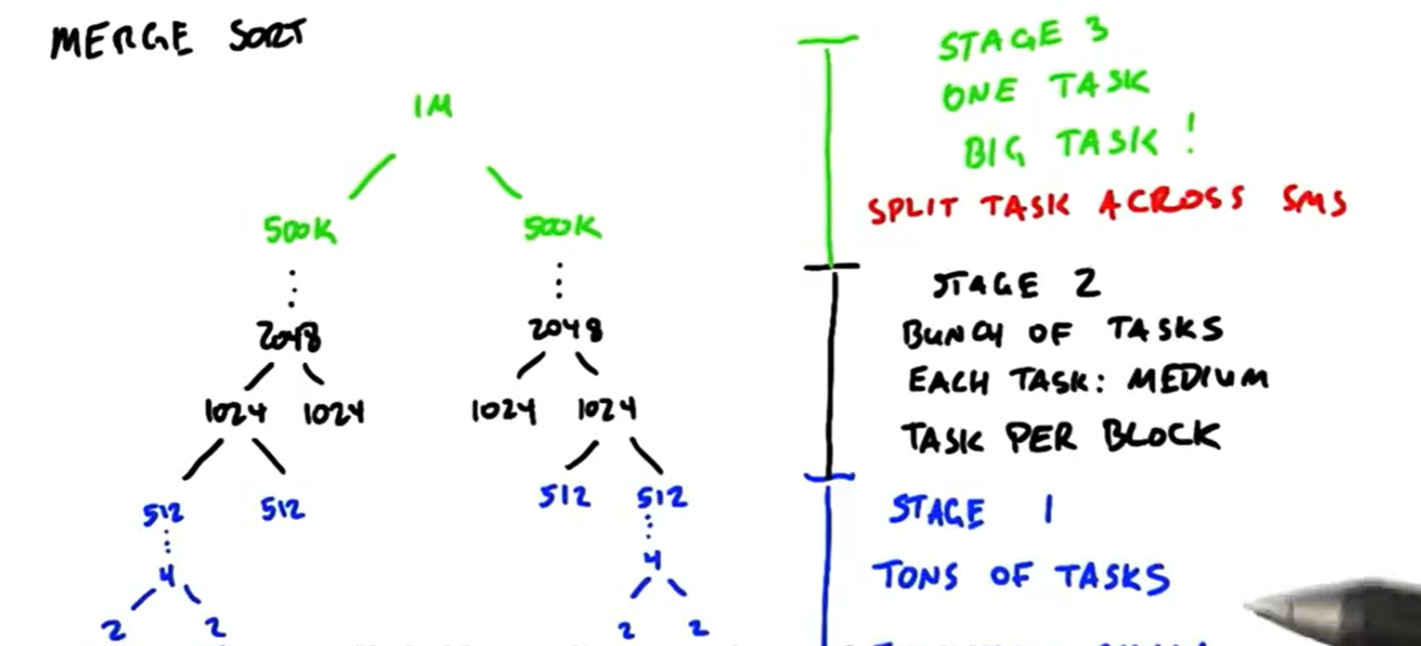 MERGE SORT
1M
500K 500K
2048 2048
1024 1024 1024 1024
512 512 512 512
4 4
2 2 2 2
STAGE 3
ONE TASK
BIG TASK!
SPLIT TASK ACROSS SMS
STAGE 2
BUNCH OF TASKS
EACH TASK: MEDIUM
TASK PER BLOCK
STAGE 1
TONS OF TASKS